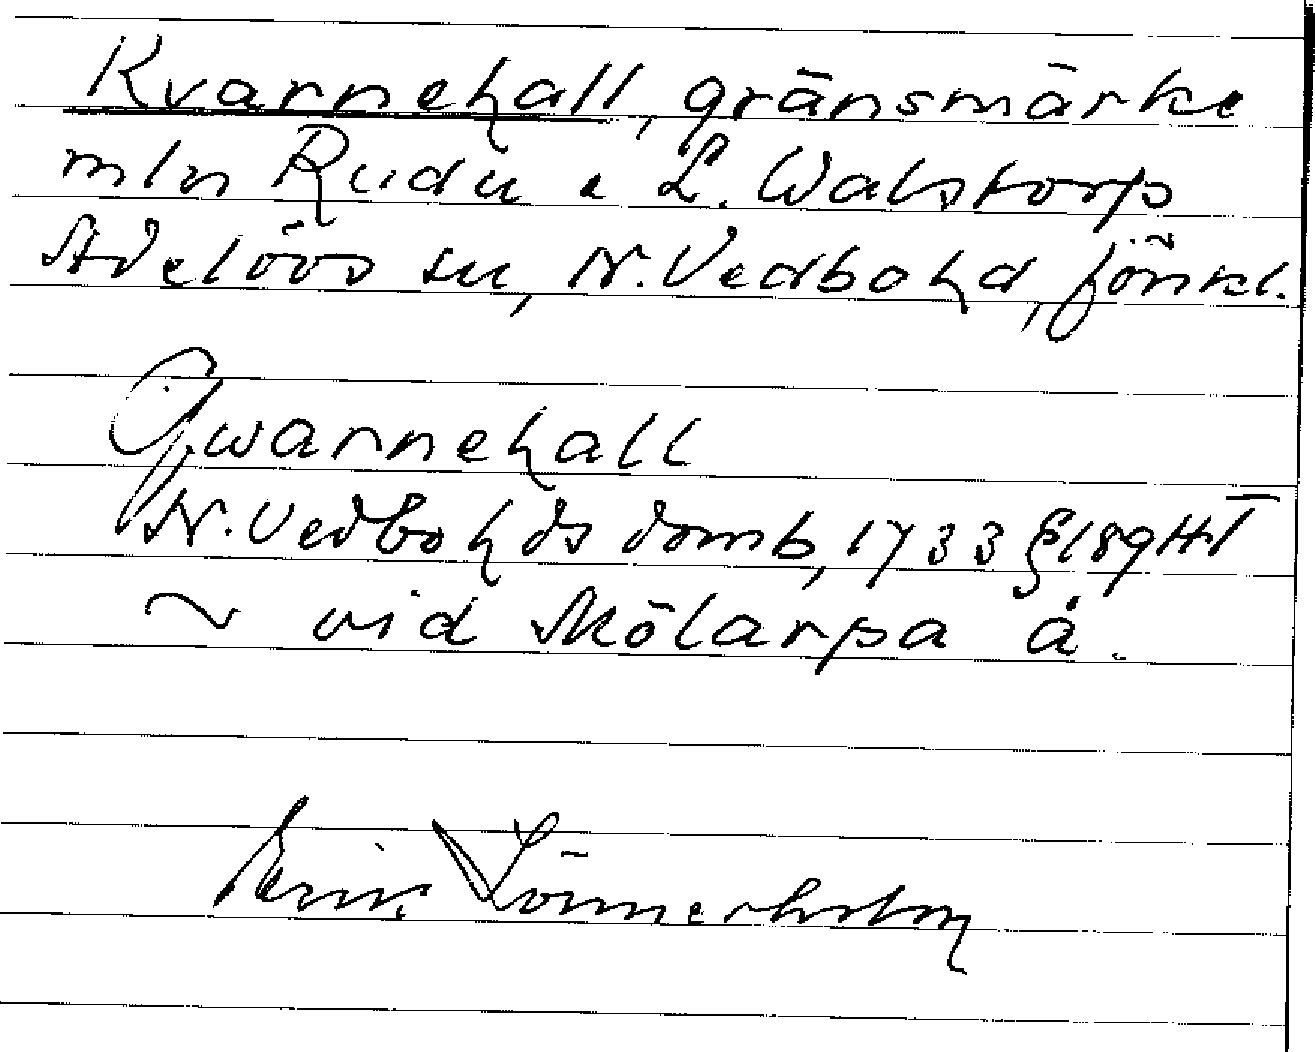 Kvarnehall, gränsmärke
mln Rudu o L. Walstorp
Adelövs sn, N. Vedbo hd, Jönk l.
Qwarnehall
N. Vedbo hds domb, 1733 § 189 HT
~ vid Mölarpa å.
Erik Lönnerholm